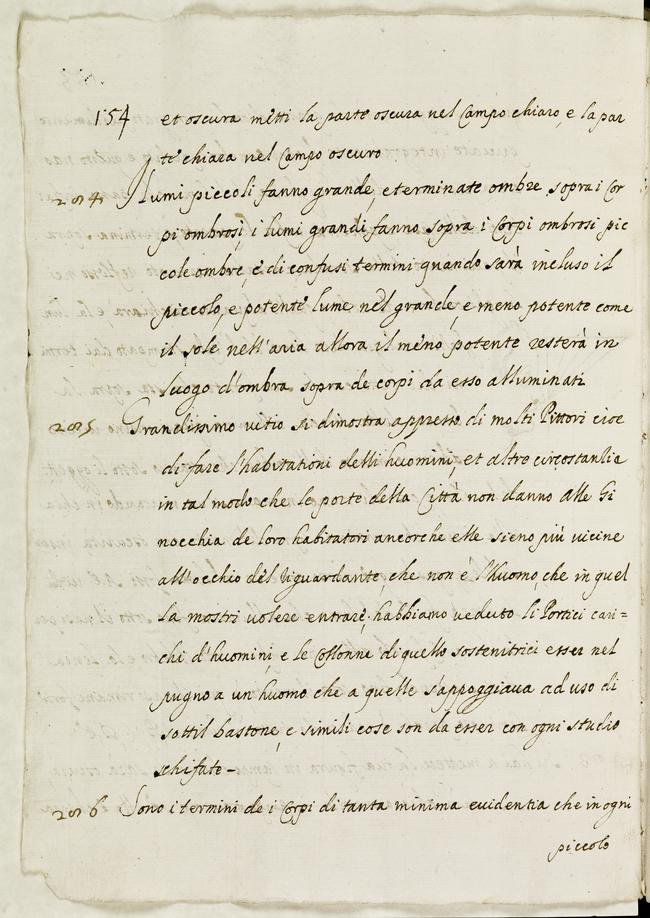 154 et oscura metti la parte oscura nel Campo chiaro, e la par
te chiara nel Campo oscuro
284 I lumi piccoli fanno grande, e terminate ombre sopra i Cor
pi ombrosi, i lumi grandi fanno sopra i Corpi ombrosi pic
cole ombre, e di confusi termini quando sarà incluso il
piccolo, e potente lume nel grande, e meno potente come
il sole nell'aria allora il meno potente resterà in
luogo d'ombra sopra de corpi da esso alluminati
285 Grandissimo vitio si dimostra appresso di molti Pittori cioe
di fare l'habitationi delli huomini, et altre circostantie
in tal modo che le porte della Città non danno alle Gi
nocchia de loro habitatori ancorche elle sieno più vicine
all'occhio del riguardante, che non è l'huomo, che in quel
la mostri volere entrare, habbiamo veduto li Portici cari=
chi d'huomini, e le Collonne di quello sostenitrici esser nel
pugno a un huomo che a quelle s'appoggiava ad uso di
sottil bastone, e simili cose son da esser con ogni studio
schifate –
286 Sono i termini de i Corpi di tanta minima evidentia che in ogni
piccolo